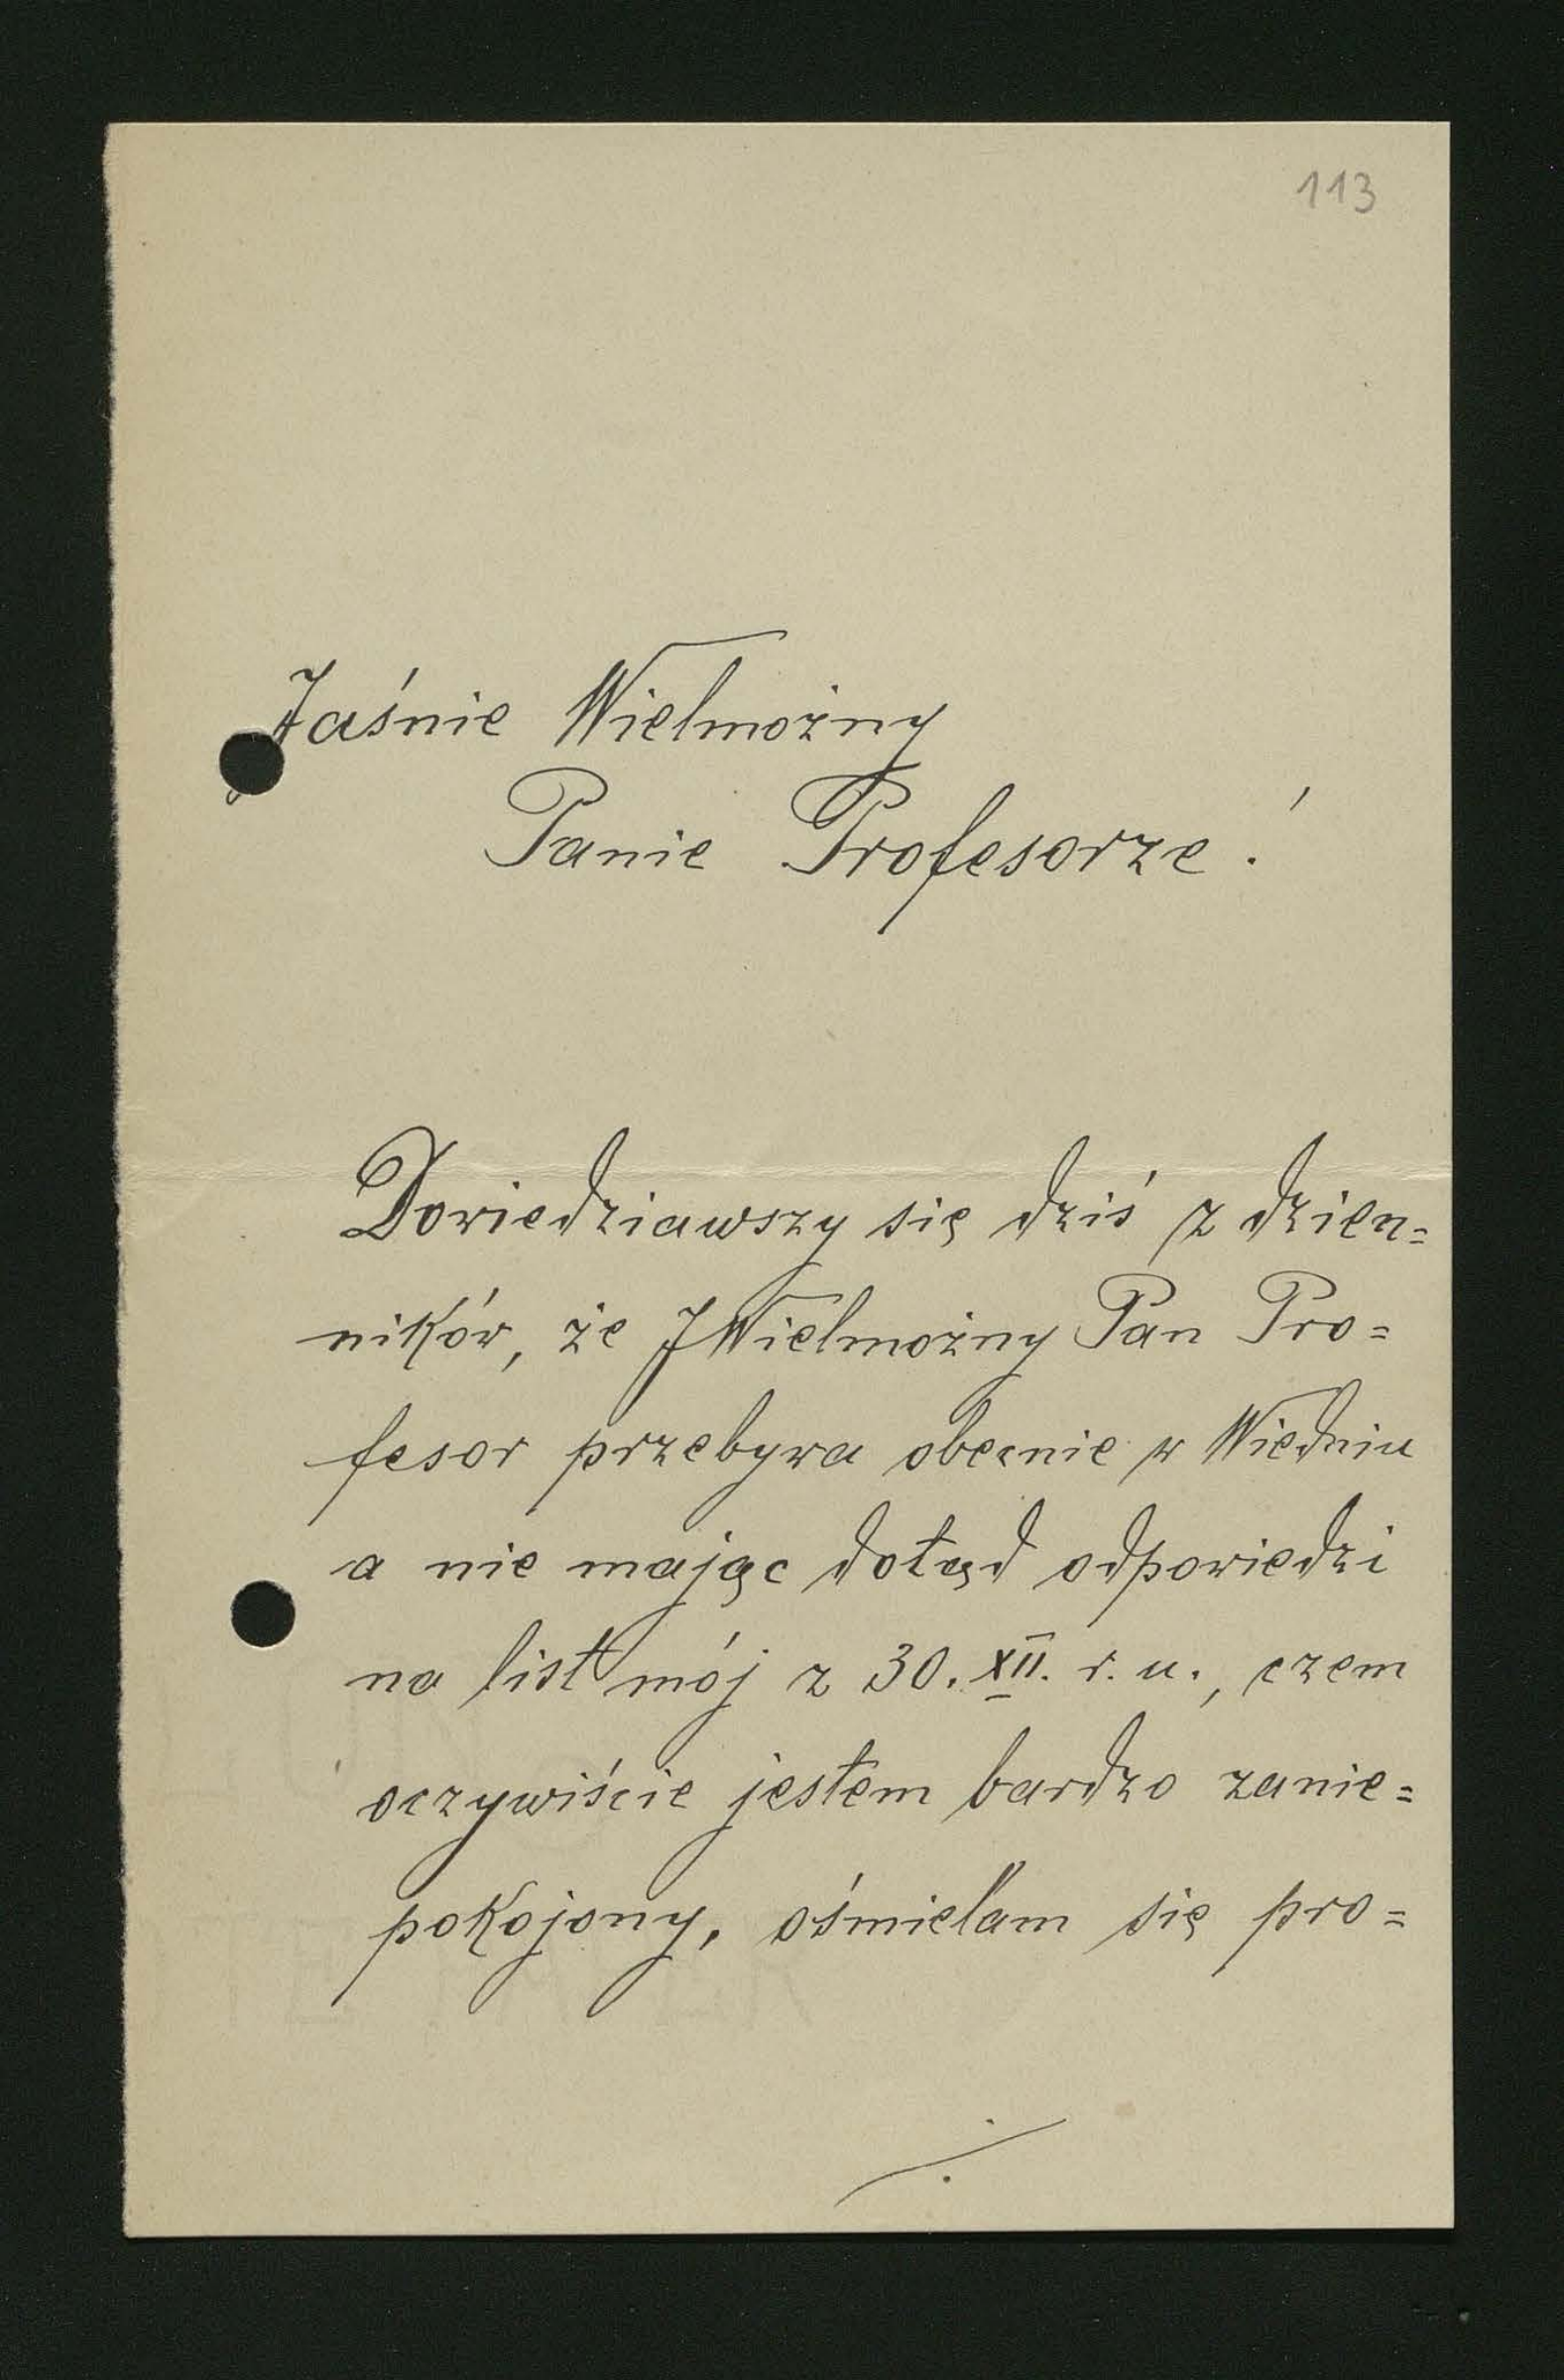 113
Jaśnie Wielmożny
Panie Profesorze!
Dowiedziawszy się dziś z dzien=
ników, że JWielmożny Pan Pro=
fesor przebywa obecnie w Wiedniu
a nie mając dotąd odpowiedzi
na list mój z 30. XII. r. u., czem
oczywiście jestem bardzo zanie=
pokojony, ośmielam się pro=
./.